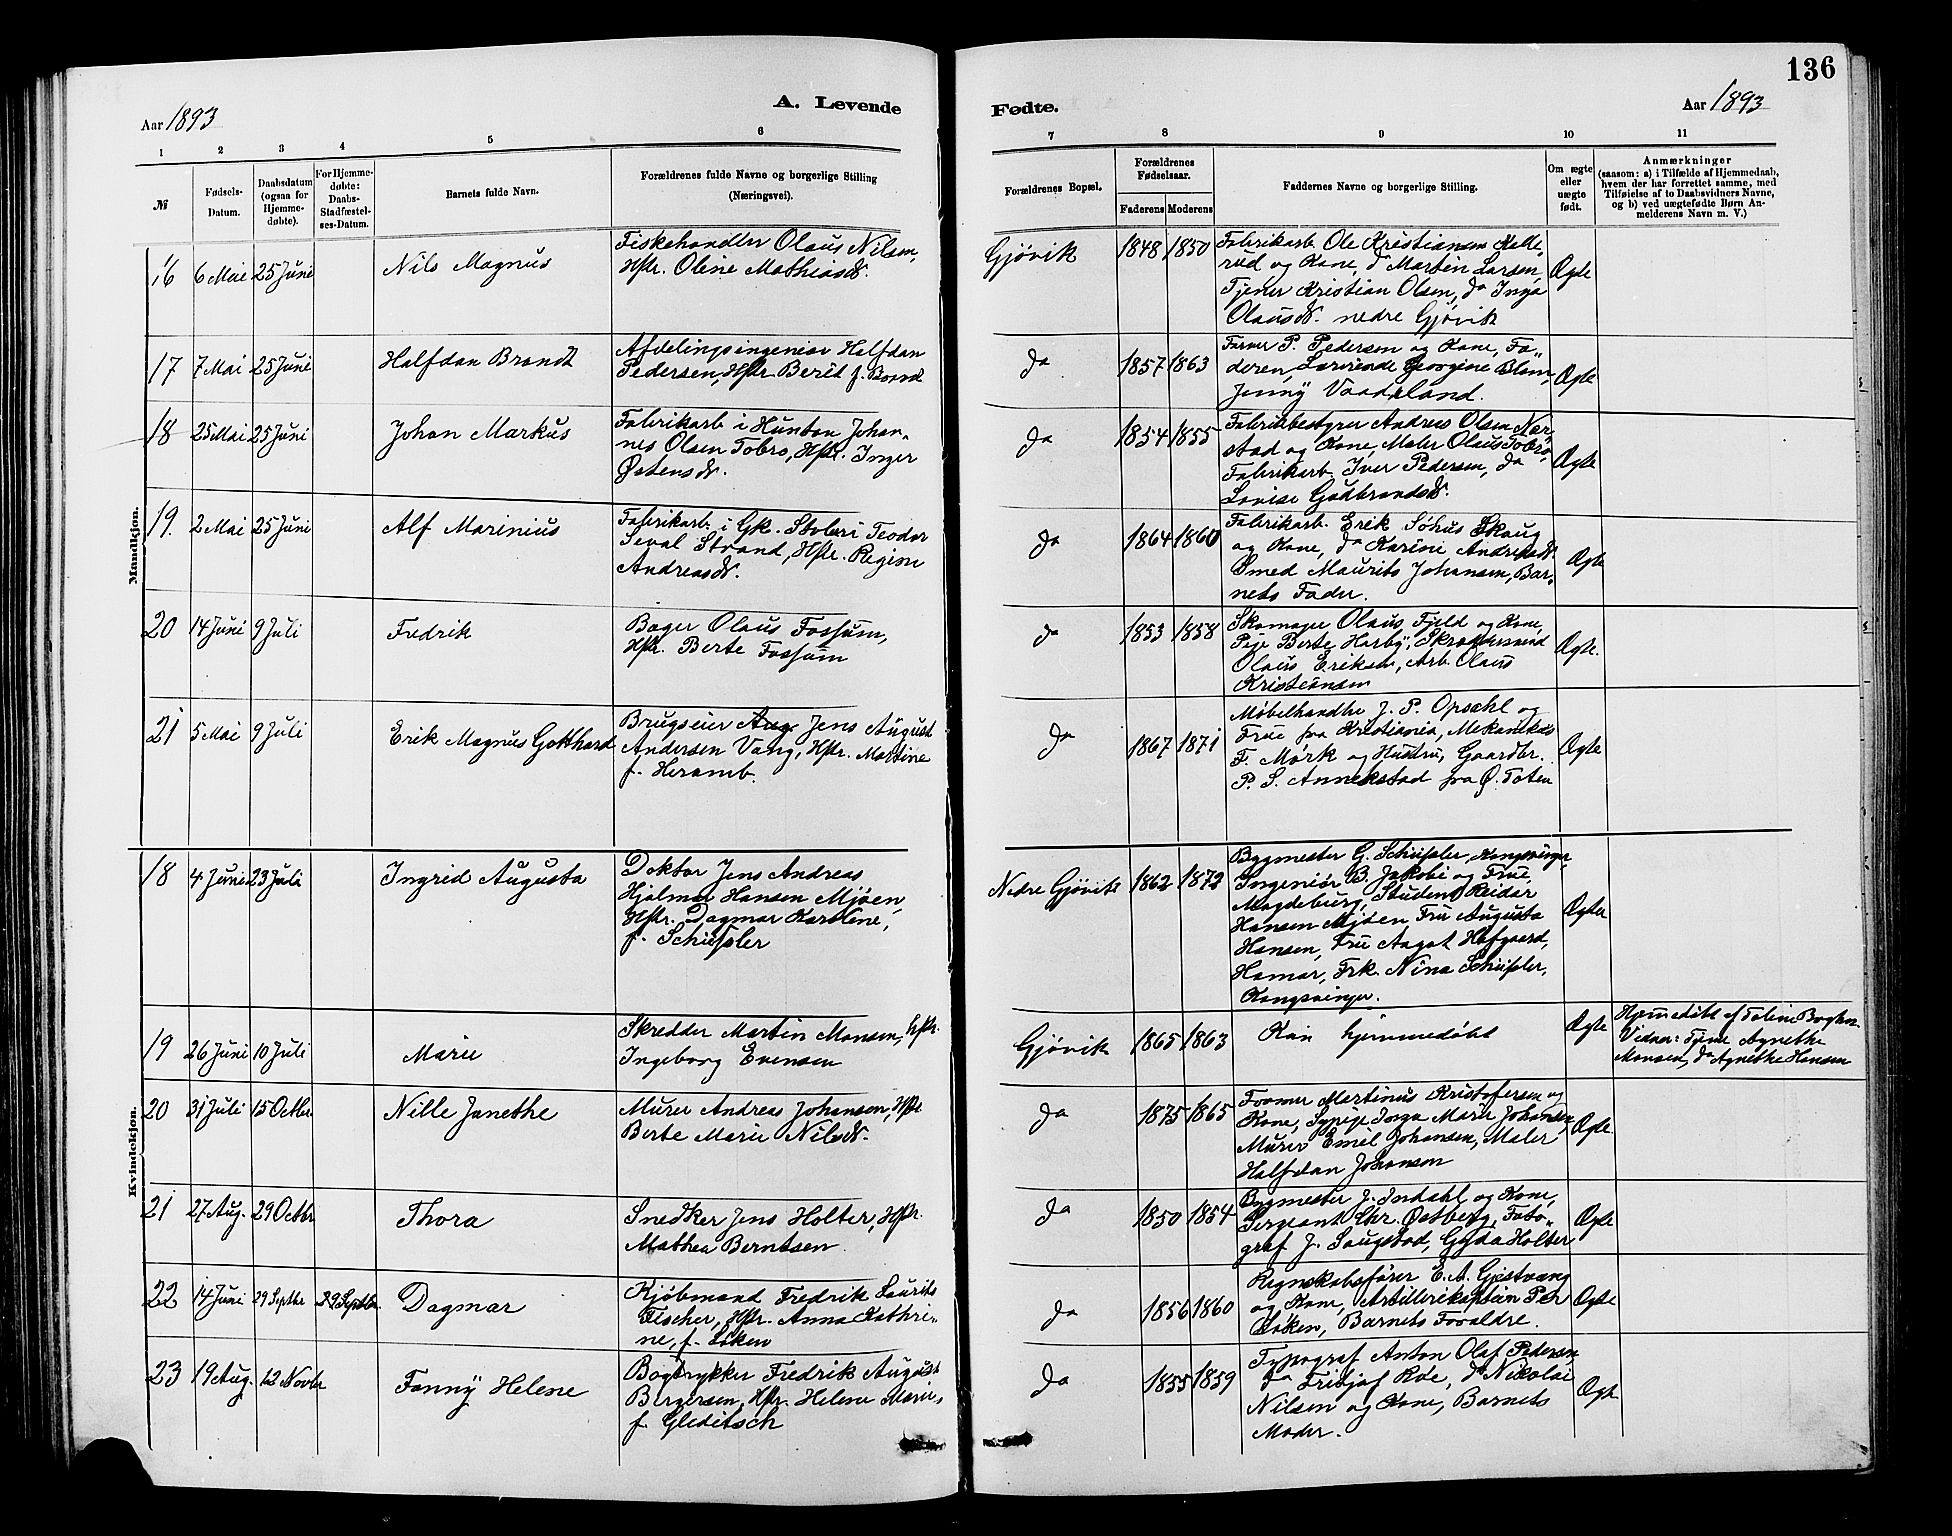 136
Aar 1893
A. Levende
Fødte.
Aar 1893
1
2
3
4
5
6
7
8
9
10
11
№
Fødsels-
Datum.
Daabsdatum
(ogsaa for
Hjemme-
døbte).
For Hjemme-
døbte:
Daabs-
Stadfæstel-
ses-Datum.
Barnets fulde Navn.
Forældrenes fulde Navne og borgerlige Stilling
(Næringsvei).
Forældrenes Bopæl.
Forældrenes
Fødselsaar.
Faderens
Moderens
Faddernes Navne og borgerlige Stilling.
Om ægte
eller
uægte
født.
Anmærkninger
(saasom: a) i Tilfælde af Hjemmedaab,
hvem der har forrettet samme, med
Tilføielse af to Daabsvidners Navne,
og b) ved uægtefødte Børn An-
melderens Navn m. V.)
Mandkjøn.
16
6 Mai
25 Juni
Nils Magnus
Fiskehandler Olaus Nilsen,
Hstr. Oline Mathiasd.
Gjøvik
1848
1850
Fabrikarb. Ole Kristiansen Kalle-
rud og Kone, do Martin Larsen,
Tjener Kristian Olsen, do Inga
Olausd. nedre Gjøvik
Ægte
17
7 Mai
25 Juni
Halfdan Brandt
Afdelingsingeniør Halfdan
Pedersen, Hstr. Berit f. Brandt
da
1857
1863
Farver P. Pedersen og Kone, Fa-
deren, Lærerinde Georgine Blom,
Jenny Vaaderland.
Ægte
18
25 Mai
25 Juni
Johan Markus
Fabrikarb. i Hunton Johan-
nes Olsen Tobro, Hstr. Inger
Østensd.
da
1854
1855
Fabrikbestyrer Andreas Olsen Nær-
stad og Kone, Maler Olaus Tobro,
Fabrikarb. Iver Pedersen, da
Lovise Gudbrandsd.
Ægte
19.
2 Mai
25 Juni
Alf Marinius
Fabrikarb. i Gk. Støberi Teodor
Seval Strand, Hstr. Regine
Andreasd.
da
1864
1860
Fabrikarb. Erik Søhus Skaug
og Kone, da Karine Andreasd.
Smed Maurits Johansen, Bar-
nets Fader.
Ægte
20
14 Juni
9 Juli
Fredrik
Bager Olaus Fossum,
Hstr. Berte Fossum
da
1853
1858
Skomager Olaus Fjeld og Kone,
Pige Berte Harby, Skræddersvend
Olaus Eriksen, Arb. Olaus
Kristiansen
Ægte.
21
5 Mai
9 Juli
Erik Magnus Gotthard
Brugseier Aug. Jens August
Andersen Vang, Hstr. Martine
f. Heramb.
da
1867
1871
Møbelhandler J. P. Opsahl og
Frue fra Kristiania, Mekanikus
F. Mørk og Hustru, Gaardbr.
P. S. Annekstad fra Ø. Toten
Ægte
Kvindekjøn.
18
4 Juni
23 Juli
Ingrid Augusta
Doktor Jens Andreas
Hjalmar Hansen Mjøen,
Hstr. Dagmar Karoline,
f. Schüssler
Nedre Gjøvik
1862
1872
Bygmester G. Schüssler, Kongsvinger,
Ingeniør B. Jakobi og Frue
Magdeburg, Student Reidar
Hansen Mjøen Fru Augusta
Hansen, Fru Aagot Hafgaard,
Hamar, Frk. Nina Schüssler,
Kongsvinger.
Ægte
19
26 Juni
10 Juli
Marie
Skredder Martin Monsen, Hstr.
Ingeborg Evensen
Gjøvik
1865
1863
Kun hjemmedøbt
Ægte
Hjemmedøbt af Toline
Vidner: Tjene Agnethe
Monsen, da Agnethe Hansen
20
31 Juli
15 Octbr
Nille Janethe
Murer Andreas Johansen, Hstr
Berte Marie Nilsd.
da
1875
1865
Former Martinus Kristofersen og
Kone, Sypige Marie Johansen,
Murer Emil Johansen, Maler
Halfdan Johansen
Ægte.
21
27 Aug.
29 Octbr
Thora
Snedker Jens Holter, Hstr.
Mathea Berntsen.
da
1850
1854
Bygmester J. Indahl og Kone,
Sergeant Chr. Østberg, Foto-
graf J. Saugstad, Gyda Holter
Ægte
22
14 Juni
29 Septbr
29 Septbr.
Dagmar
Kjøbmand Fredrik Laurits
Fischer, Hstr. Anna Kathri-
ne, f. Løken
da
1856
1860
Regnskabsfører E. A. Gjestvang
og Kone, Artillerikaptein Per
Løken, Barnets Forældre.
Ægte
23
19 Aug.
12 Novbr
Fanny Helene
Bogtrykker Fredrik August
Bergersen, Hstr. Helene Marie,
f. Gleditsch
da
1855
1859
Typograf Anton Olaf Pedersen,
da Fritjof Roe, da Nikolai
Nilsen og Kone, Barnets
Moder.
Ægte